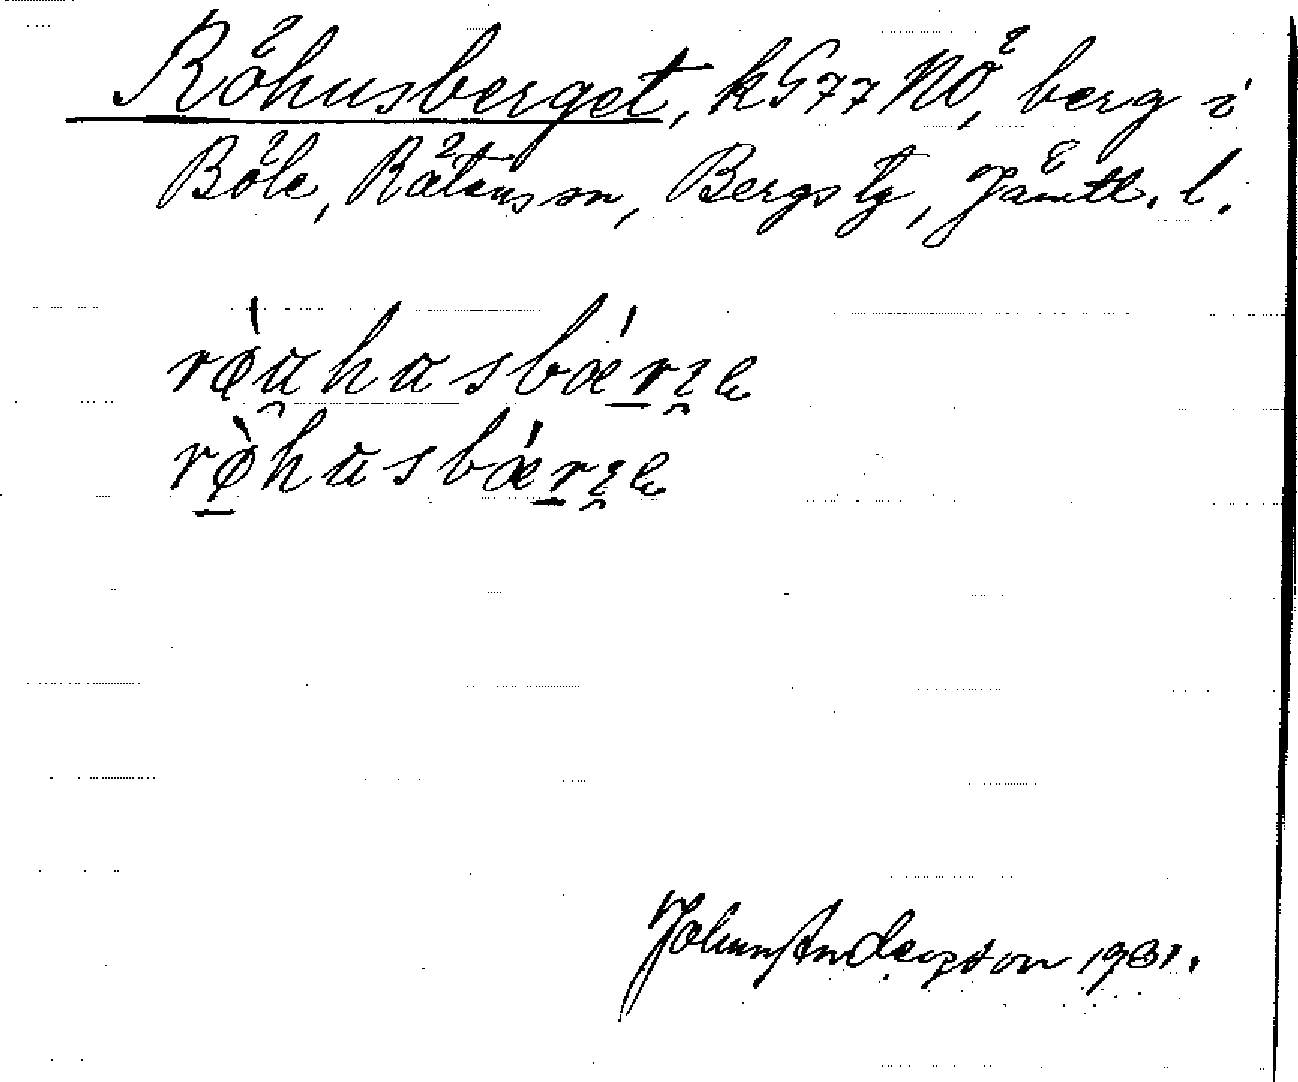 Röhusberget, k 5977 NÖ, berg i
Böle, Rätans sn, Bergs tg, Jämtl. l.
rø̀u̯husbǽrʐe
rø̀husbǽrʐe
Johan Anderson 1931.